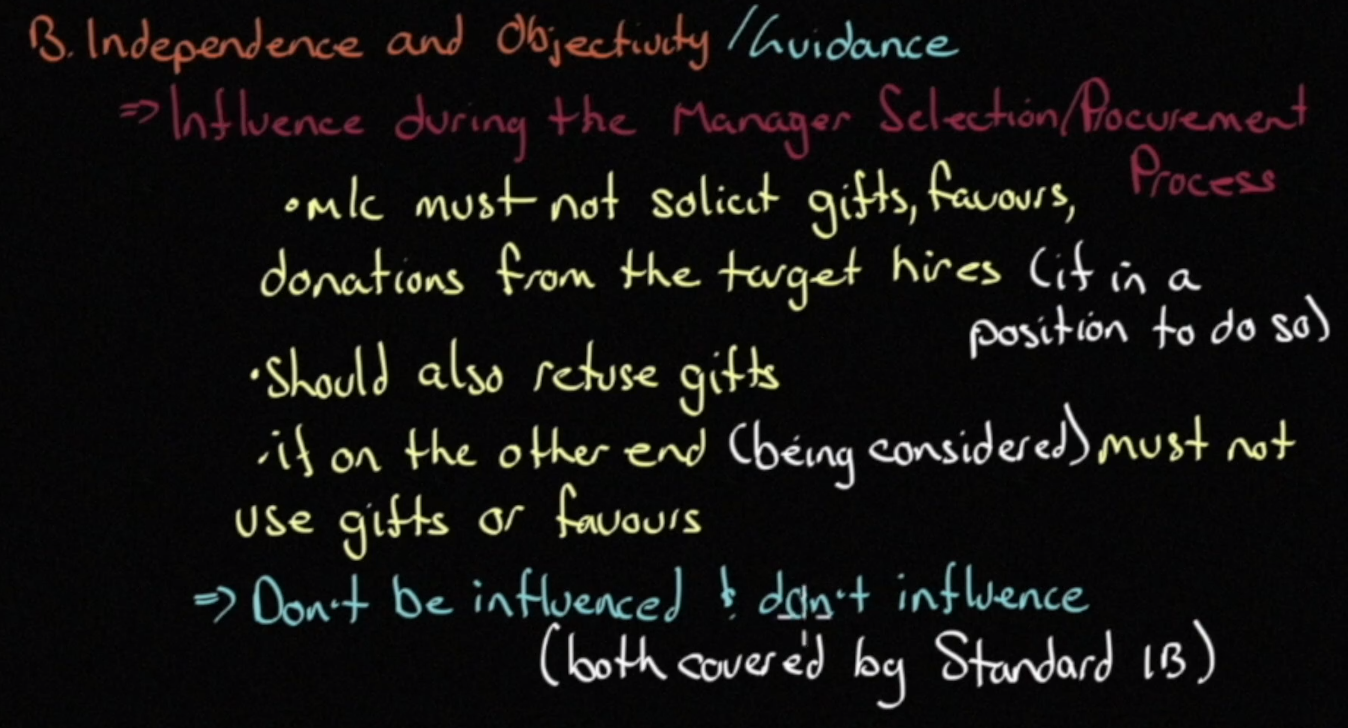 B. Independence and Objectivity /Guidance
=> Influence during the Manager Selection/Procurement
Process
• M/C must not solicit gifts, favours,
donations from the target hires (if in a
position to do so)
• Should also refuse gifts
• if on the other end (being considered) must not
use gifts or favours
=> Don't be influenced & don't influence
(both covered by Standard 1B)